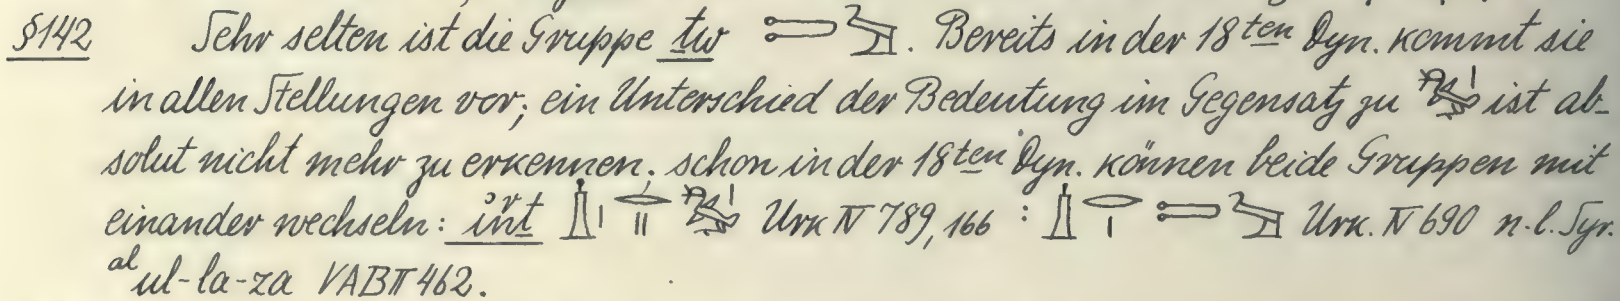 §142 Sehr selten ist die Gruppe tw 𓍿 . Bereits in der 18ten Dyn. kommt sie
in allen Stellungen vor; ein Unterschied der Bedeutung im Gegensatz zu ist ab-
solut nicht mehr zu erkennen. schon in der 18ten Dyn. können beide Gruppen mit
einander wechseln: Urk IV 789,166 : Urk. IV 690 n.l. Syr.
al ul-la-za VAB II 462.